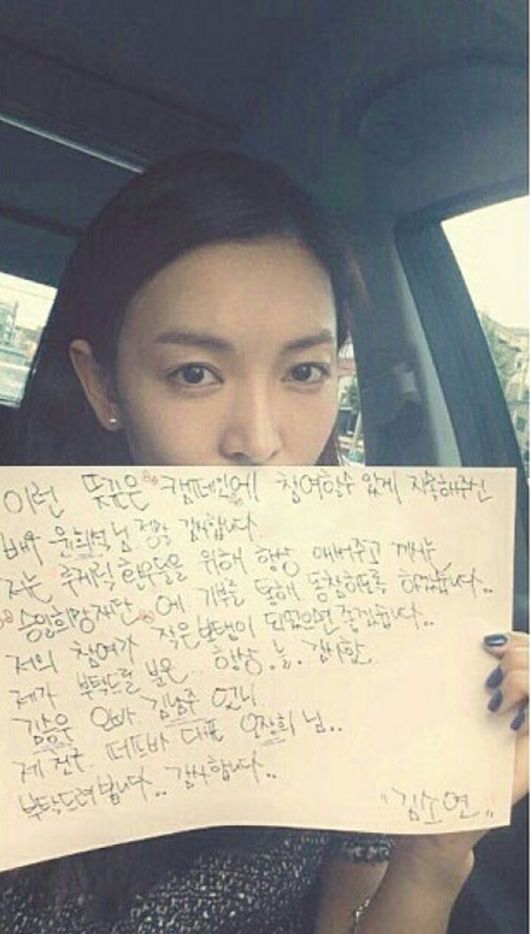 이런 뜻깊은 캠페인에 참여할수 있게 지목해주신
배우 윤희석님 정말 감사합니다.
저는 루게릭 환우들을 위해 항상 애써주고 계시는
승일희망재단에 기부를 통해 동참하도록 하겠습니다..
저의 참여가 작은보탬이 되었으면 좋겠습니다..
제가 부탁드릴 분은.. 항상.늘.감사한
김승우 오빠 김남주 언니
제 친구 퍼프바 대표 오장희 님..
부탁드려봅니다.. 감사합니다..
"김소연"